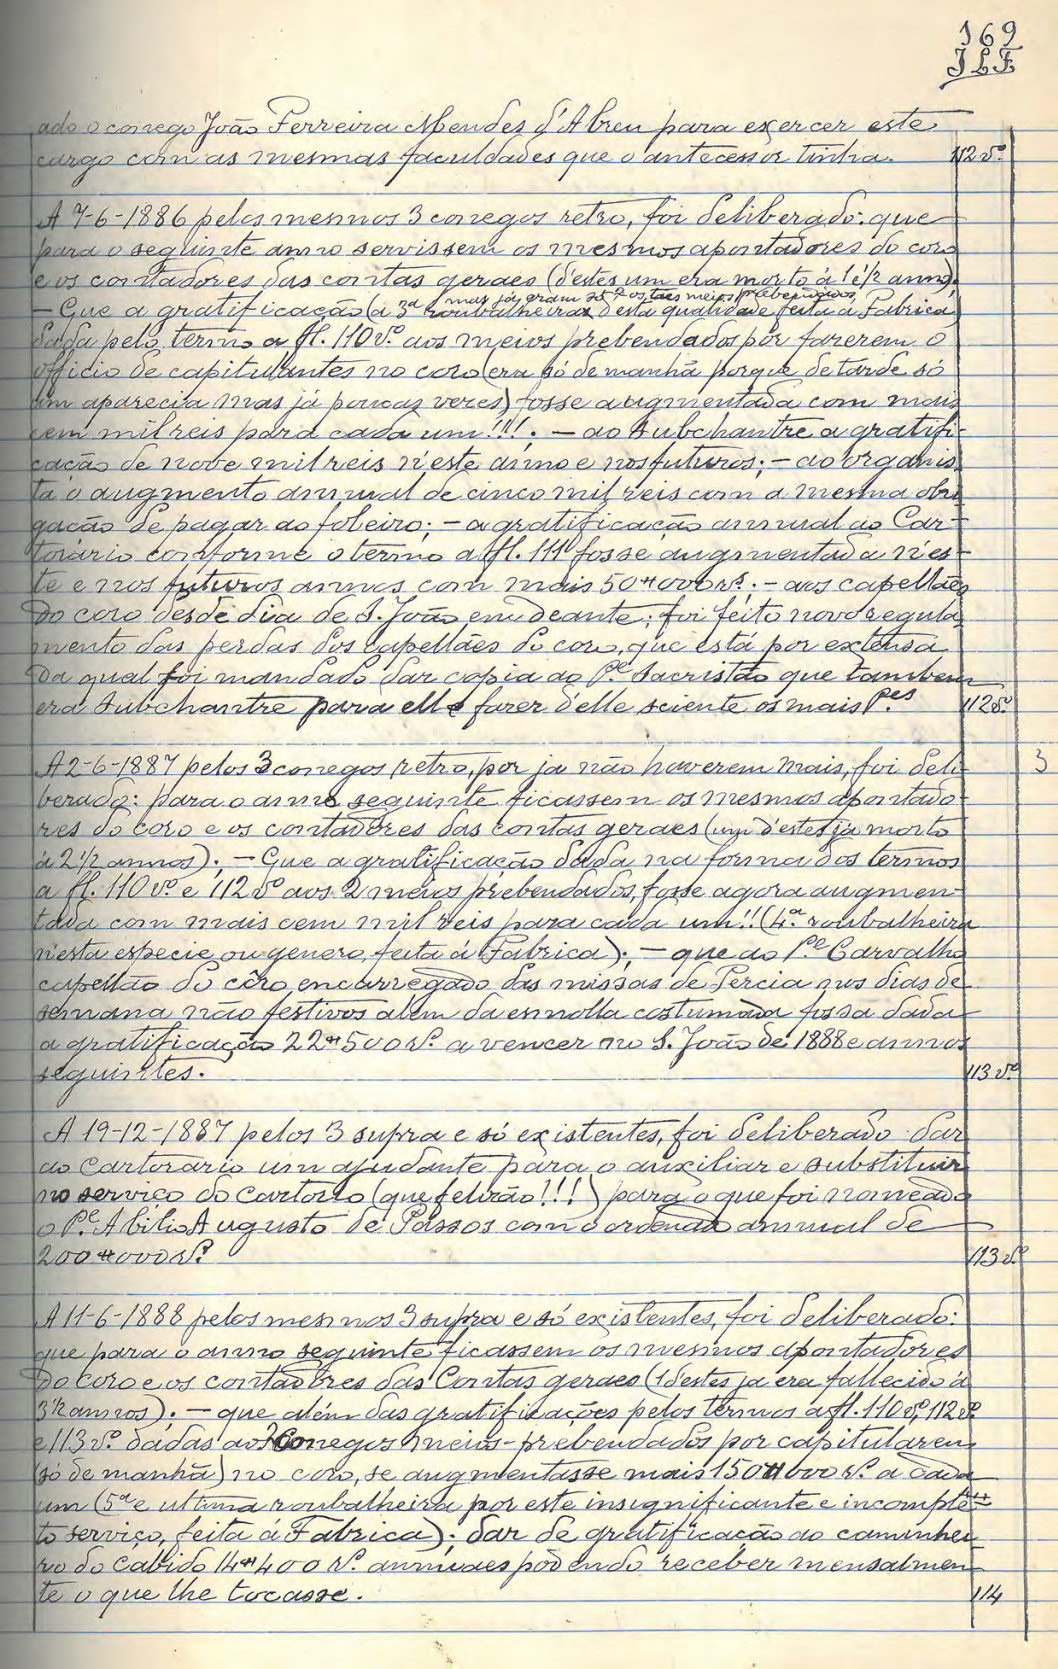 169
JLF
ado o conego João Ferreira Mendes d'Abreu para exercer este
cargo com as mesmas faculdades que o antecessor tinha. 112 vº
A 7-6-1886 pelos mesmos 3 conegos retro, foi deliberado: que
para o seguinte anno servissem os mesmos apontadores do coro
e os contadores das contas geraes (d'estes um era morto à 1 e 1/2 anno).
mas já eram só 2 os taes meios prebendados
— Que a gratificação (a 3ª roubalheira d'esta qualidade feita á Fabrica)
dada pelo termo a fl. 110 vº aos meios prebendados por fazerem o
officio de capitulantes no coro (era só de manhã porque de tarde só
um aparecia mas já poucas vezes) fosse augmentada com mais
cem mil reis para cada um!!!; — ao subchantre a gratifi-
cação de nove mil reis n'este anno e nos futuros; — ao organis-
ta o augmento annual de cinco mil reis com a mesma obri-
gação de pagar ao foleiro; — a gratificação annual ao Car-
torário conforme o termo a fl. 111 fosse augmentada n'es-
te e nos futuros annos com mais 50#000 rs.; — aos capellães
do coro desde dia de S. João em deante; foi feito novo regula-
mento das perdas dos capellães do coro, que está por extenso
da qual foi mandado dar copia ao Pe. Sacristão que tambem
era Subchantre para elle fazer d'elle sciente os mais Pes 112 vº
A 2-6-1887 pelos 3 conegos retro, por ja não haverem mais, foi deli- 3
berado: para o anno seguinte ficassem os mesmos apontado-
res do coro e os contadores das contas geraes (um d'estes já morto
à 2 1/2 annos); — Que a gratificação dada na forma dos termos
a fl. 110 vº e 112 vº aos 2 meios prebendados, fosse agora augmen-
tada com mais cem mil reis para cada um!! (4ª roubalheira
n'esta especie ou genero feita á Fabrica); — que ao Pe. Carvalho
capellão do côro, encarregado das missas de Tercia nos dias de
semana não festivos além da esmolla costumada fosse dada
a gratificação 22#500 rs. a vencer no S. João de 1888 e annos
seguintes. 113 vº
A 19-12-1887 pelos 3 supra e só existentes, foi deliberado dar
ao Cartorario um ajudante para o auxiliar e substituir
no serviço do cartorio (que felizão!!!) para o que foi nomeado
o Pe. Abilio Augusto de Passos com o ordenado annual de
200#000 rs. 113 vº
A 11-6-1888 pelos mesmos 3 supra e só existentes, foi deliberado:
que para o anno seguinte ficassem os mesmos apontadores
do coro e os contadores das Contas geraes (1 d'estes ja era fallecido à
3 1/2 annos); — que além das gratificações pelos termos a fl. 110 vº, 112 vº
e 113 vº dadas aos 2 Conegos meios-prebendados por capitularem
(só de manhã) no coro, se augmentasse mais 150#000 rs. a cada
um (5ª e ultima roubalheira por este insignificante e incomple-
to serviço, feita á Fabrica); dar de gratificação ao caminhei-
ro do Cabido 14#400 rs. annuaes podendo receber mensalmen-
te o que lhe tocasse. 114